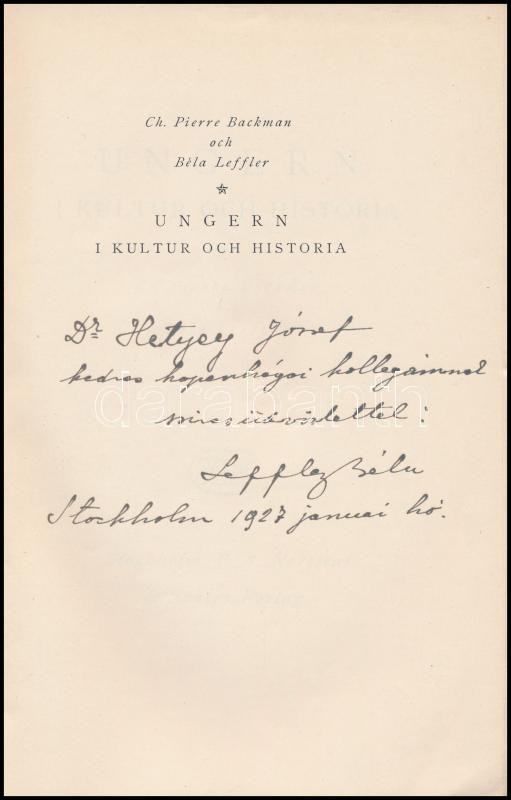 Ch. Pierre Backman
och
Bèla Leffler
UNGERN
I KULTUR OCH HISTORIA
Dr Hetyey József
kedves kopenhágai kollegámnak
szives üdvözlettel:
darabanth
Leffler Béla
Stockholm 1927 januái hó.